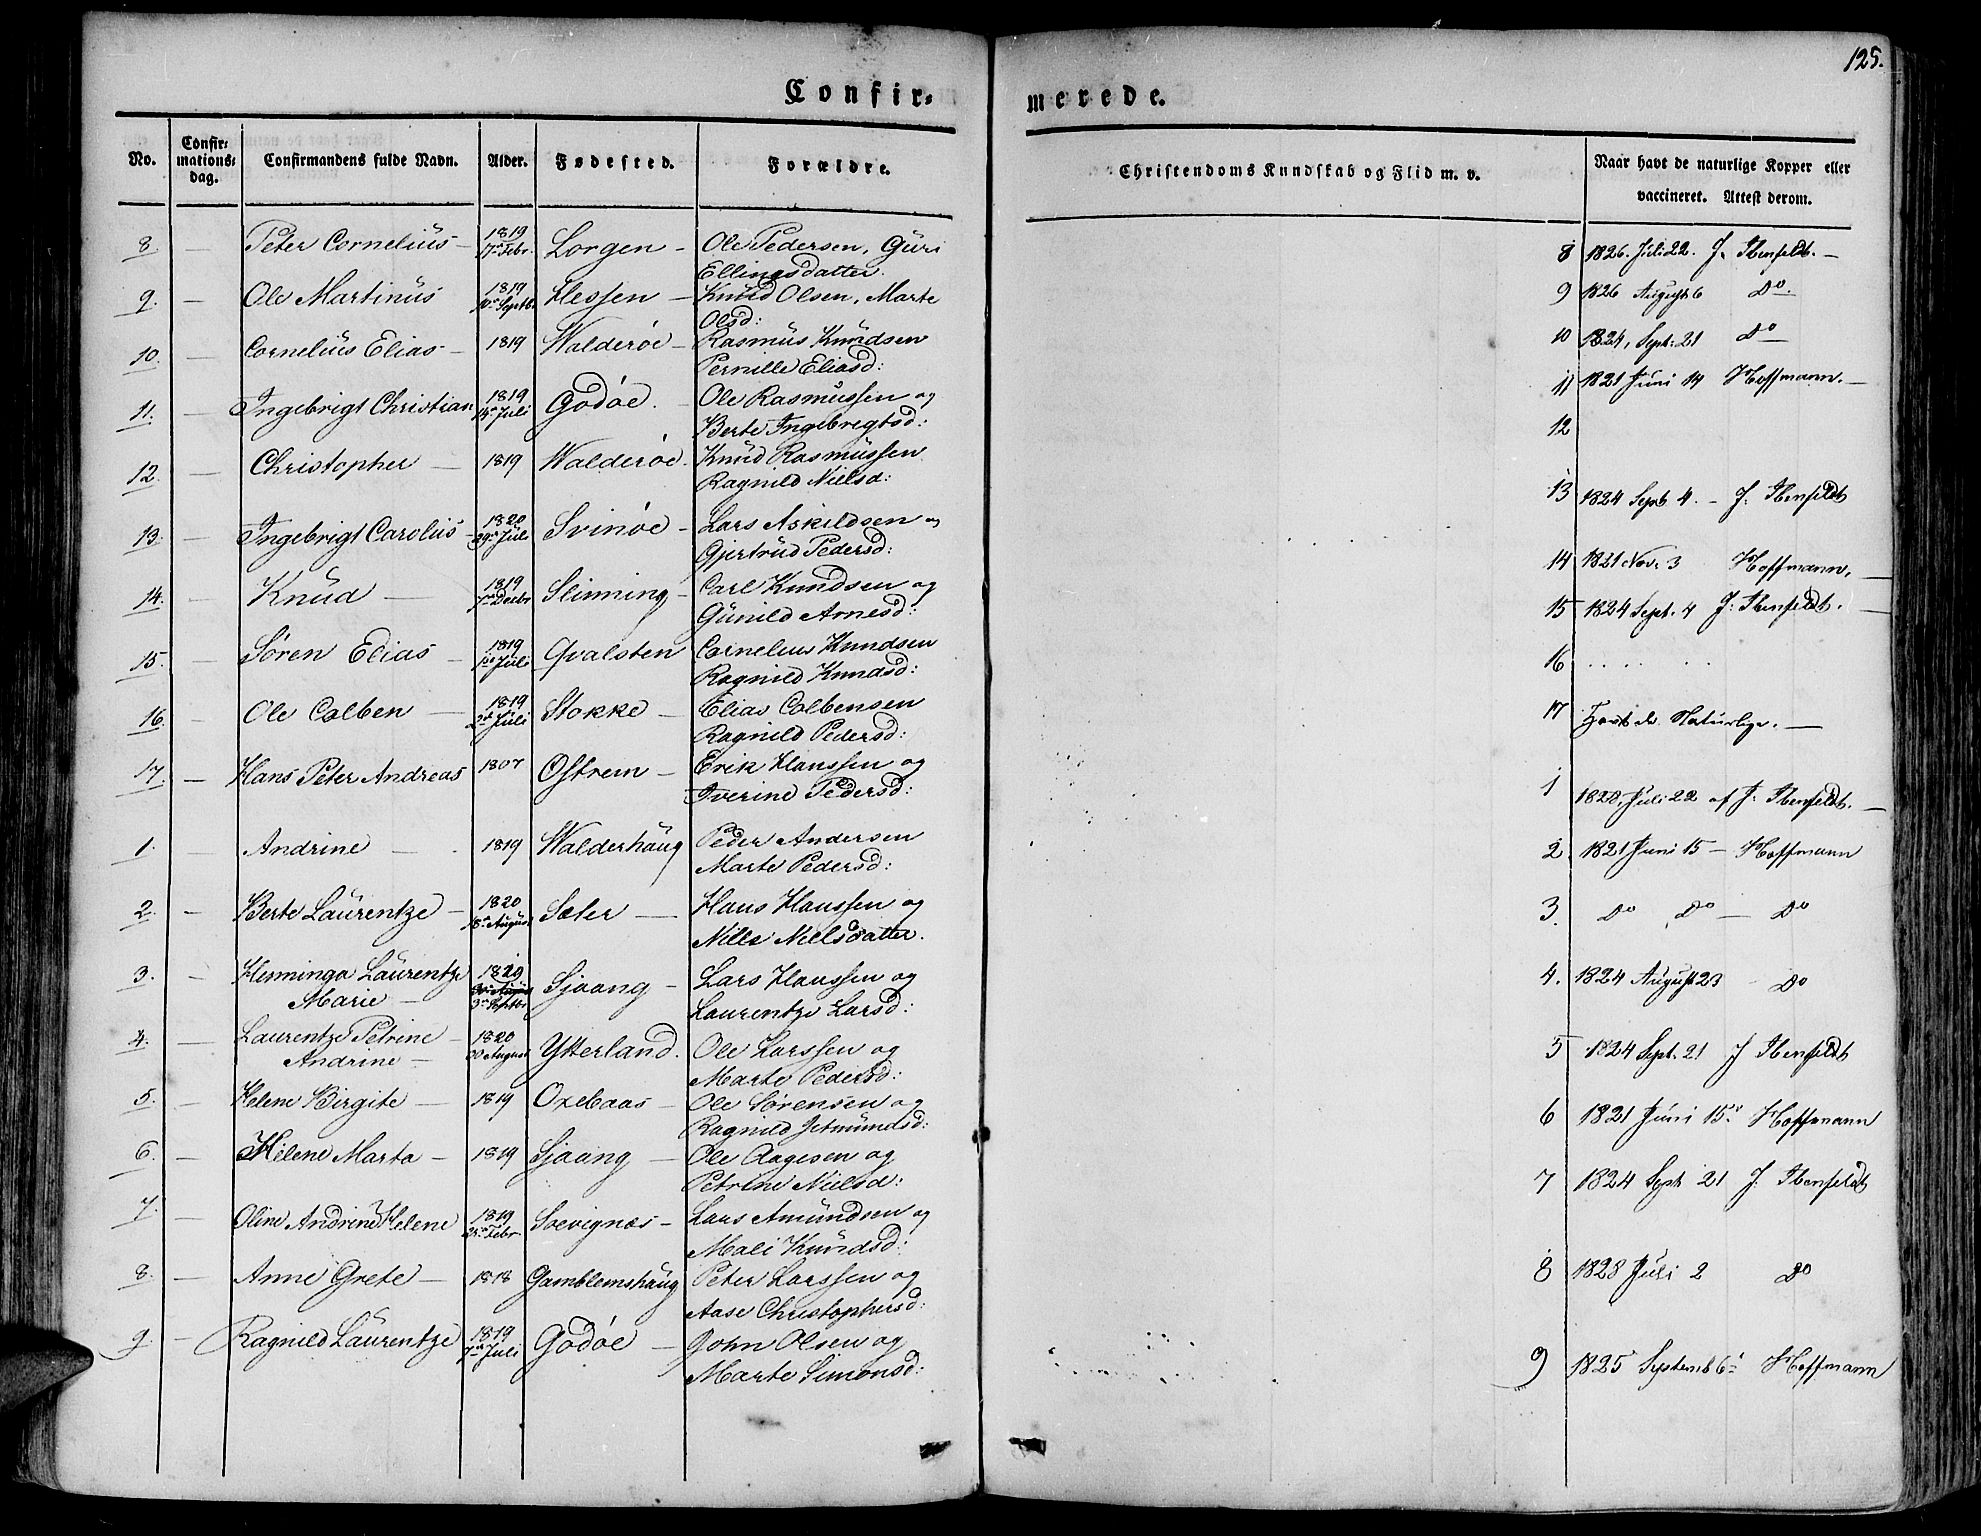 125.
Confir-
merede.
No.
Confir-
mations-
dag.
Confirmandens fulde Navn.
Alder.
Fødested.
Forældre.
Christendoms Kundskab og Flid m. v.
Naar havt de naturlige Kopper eller
vaccineret. Attest derom.
8. — Peter Cornelius — 1819 17de Febr. Lorgen — Ole Pedersen, Guri
Ellingsdatter.
9. — Ole Martinus 1819 Septbr. Hessen — Knud Olsen, Marte
Olsd:
10. — Cornelius Elias — 1819 Walderøe — Rasmus Knudsen
Pernille Eliasd:
11. — Ingebrigt Christian 1819 14de Juli Godøe. — Ole Rasmussen og
Berte Ingebrigtsd:
12. — Christopher — 1819 Walderøe. Knud Rasmussen
Ragnild Nielsd:
13. — Ingebrigt Carolus — 1820 29de Juli Svinøe — Lars Askildsen og
Gjertrud Pedersd:
14. — Knud — 1819 7de Decbr Slinning — Carl Knudsen og
Gunild Arnesd:
15. — Søren Elias — 1819 Juli Qvalsten Cornelius Knudsen
Ragnild Knudsd:
16. — Ole Colben — 1819 2de Juli Stokke — Elias Colbensen
Ragnild Pedersd:
17. — Hans Peter Andreas 1807 Ostrem — Erik Hanssen og
Iverine Pedersd:
1. — Andrine — 1819 Walderhaug Peder Andersen
Marte Pedersd:
2. — Berte Laurentze — 1820 18de August Sæter — Hans Hanssen og
Nille Nielsdatter.
3. — Hemminga Laurentze Sjaang — Lars Hanssen og
Marie — 3de Septbr. Laurentze Larsd:
4. — Laurentze Petrine — 1820 Ytterland. Ole Larssen og
Andrine — August Marte Pedersd:
5. — Helene Birgite — 1819 Oxebaas — Ole Sørensen og
Ragnild Jetmundsd:
6. — Helene Marta — 1819 Sjaang — Ole Aagesen og
Petrine Nielsd:
7. — Oline Andrine Helene 1819 Febr. Soevignæs — Lars Amundsen og
Mali Knudsd:
8. — Anne Grete — 1818 Gamblemshaug Peter Larssen og
Aase Christophersd:
9. — Ragnild Laurentze 1819 7de Juli Godøe — John Olsen og
Marte Simonsd:
8 1826. Juli 22. J. Ibenfeldt. —
9 1826 August 6 Do.
10 1824, Sept: 21 Do
11 1821 Juni 14 Hoffmann. —
12
13 1824 Sept 4. — J: Ibenfeldt
14 1821 Nov: 3 Hoffmann, —
15 1824 Sept. 4 J: Ibenfeldt. —
16 . . . . . .
17 Havt de Naturlige. —
1 1828, Juli 22 af J: Ibenfeldt. —
2 1821 Juni 15 — Hoffmann
3 Do Do — Do
4. 1824 August 23 Do
5 1824 Sept. 21 J Ibenfeldt
6 1821 Juni 15. Hoffmann
7 1824 Sept 21 J: Ibenfeldt
8 1828 Juli 2 Do
9 1825 Septemb 6 Hoffmann